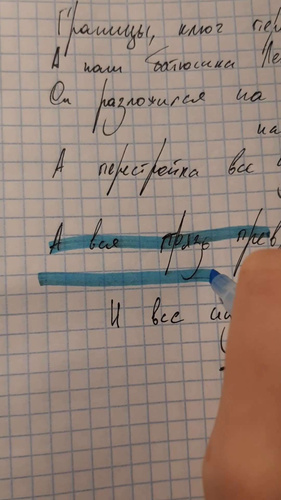 Границы, ключ пер
А наш батюшка Ле
Он разложился на
на
А перестройка все
А вся грязь прев
И все